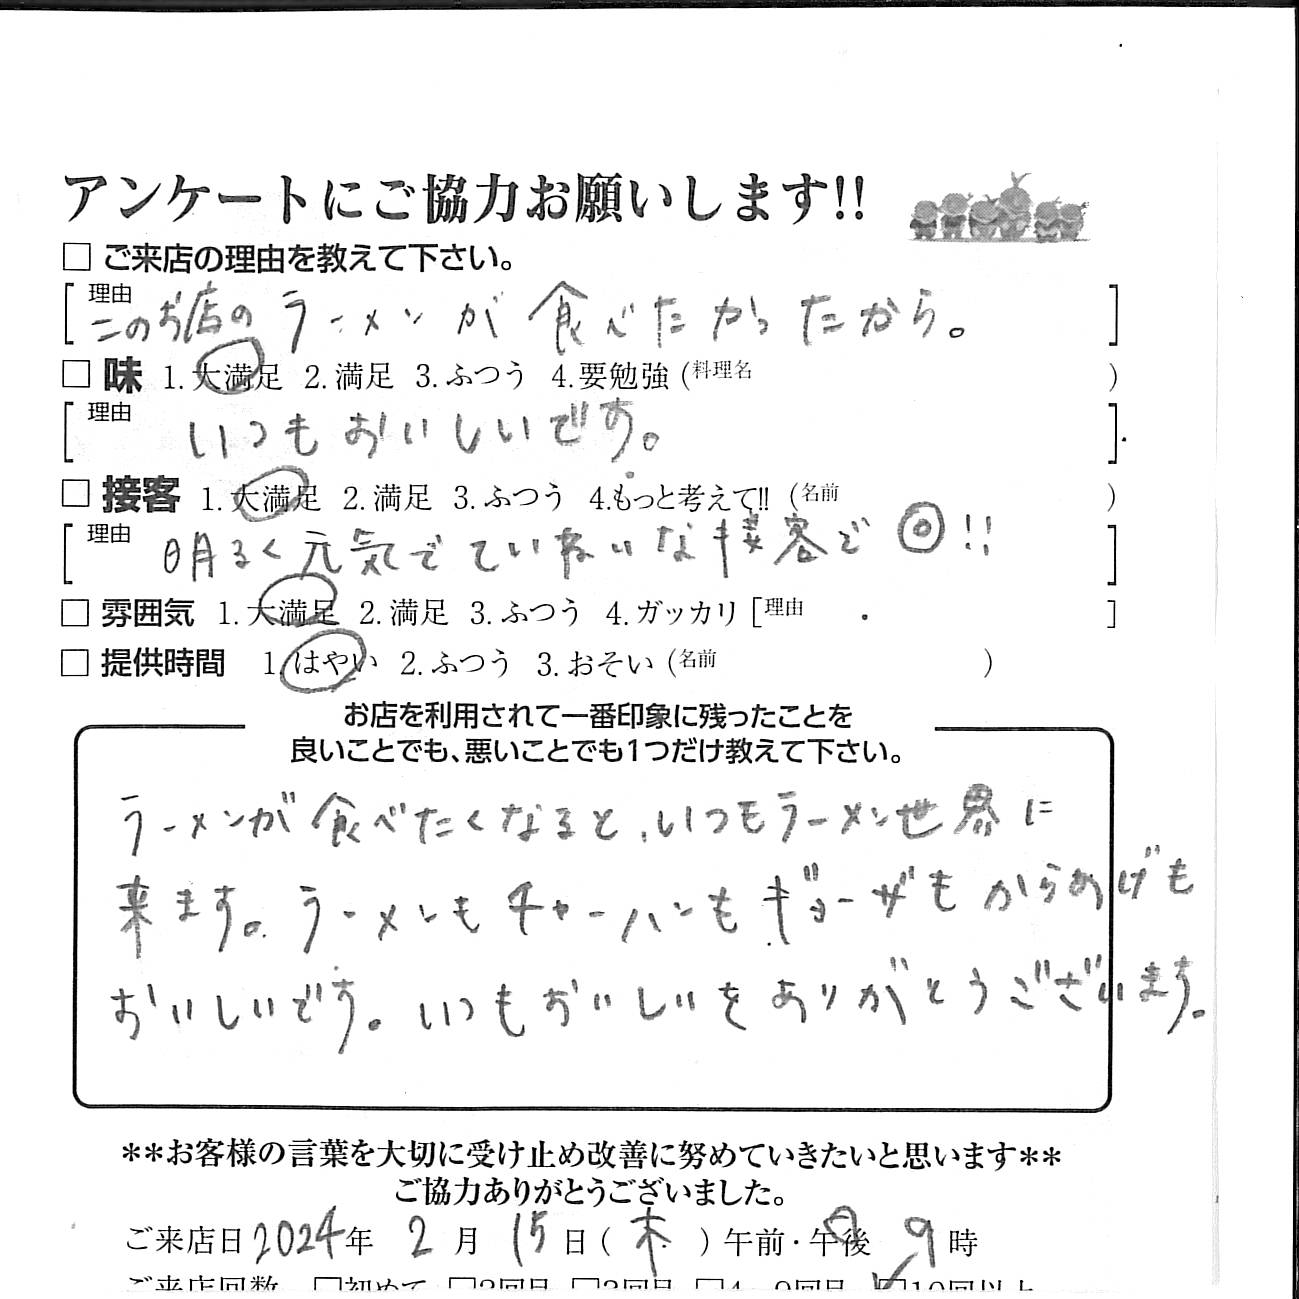 アンケートにご協力お願いします!!
□ ご来店の理由を教えて下さい。
[理由 このお店のラーメンが食べたかったから。]
□ 味 1.大満足 2.満足 3.ふつう 4.要勉強 (料理名 )
[理由 いつもおいしいです。]
□ 接客 1.大満足 2.満足 3.ふつう 4.もっと考えて!! (名前 )
[理由 明るく元気でていねいな接客で◎!!]
□ 雰囲気 1.大満足 2.満足 3.ふつう 4.ガッカリ [理由 ]
□ 提供時間 1.はやい 2.ふつう 3.おそい (名前 )
お店を利用されて一番印象に残ったことを
良いことでも、悪いことでも1つだけ教えて下さい。
ラーメンが食べたくなると、いつもラーメン世界に
来ます。ラーメンもチャーハンもギョーザもからあげも
おいしいです。いつもおいしいをありがとうございます。
**お客様の言葉を大切に受け止め改善に努めていきたいと思います**
ご協力ありがとうございました。
ご来店日 2024年 2月 15日(木)午前・午後 9時
ご来店回数 □初めて □2回目 □3回目 □4〜9回目 □10回以上